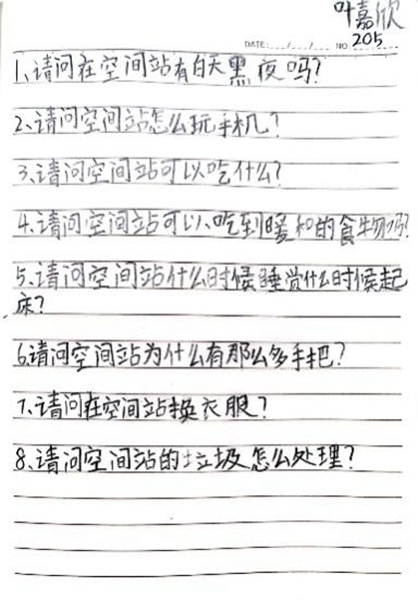 叶嘉欣
DATE: / / NO 205
1、请问在空间站有白天黑夜吗?
2、请问空间站怎么玩手机?
3、请问空间站可以吃什么?
4、请问空间站可以吃到暖和的食物吗?
5、请问空间站什么时候睡觉什么时候起
床?
6、请问空间站为什么有那么多手把?
7、请问在空间站换衣服?
8、请问空间站的垃圾怎么处理?